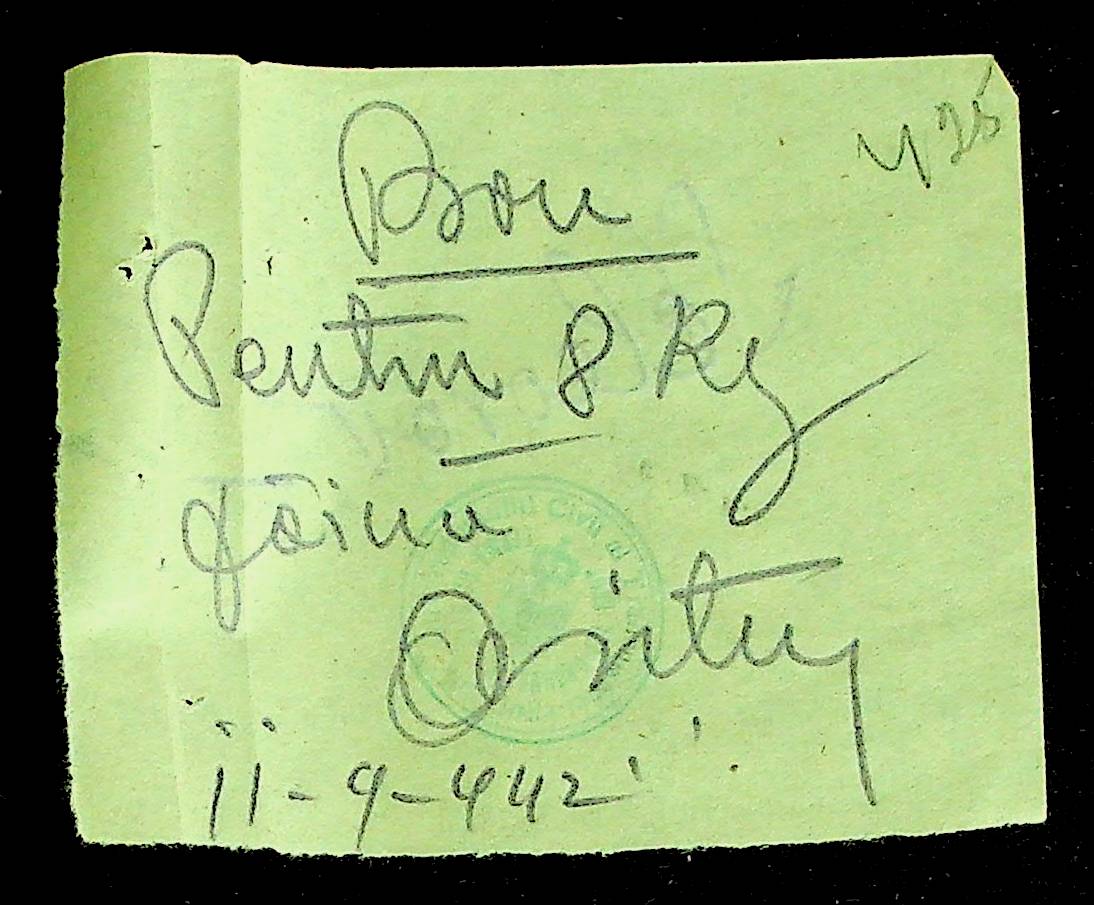 425
Bon
Pentru 8 Kg
făina
11-9-942